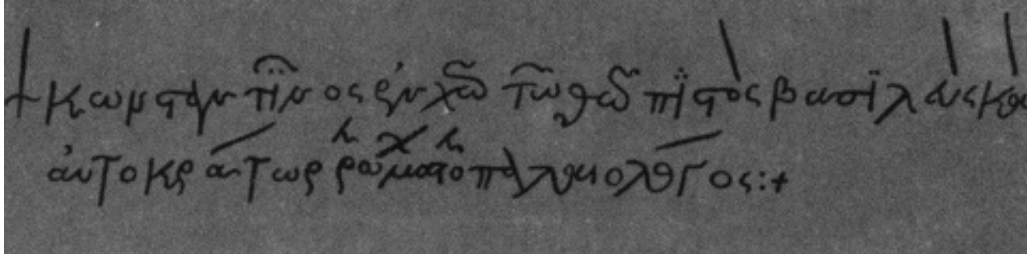 + κωνσταντῖνος ἐν χω̅ τῶ θω̅ πϊστὸς βασϊλεὺς καὶ
αὐτοκράτωρ ῥωμαίων ὁ παλαιολόγος:+